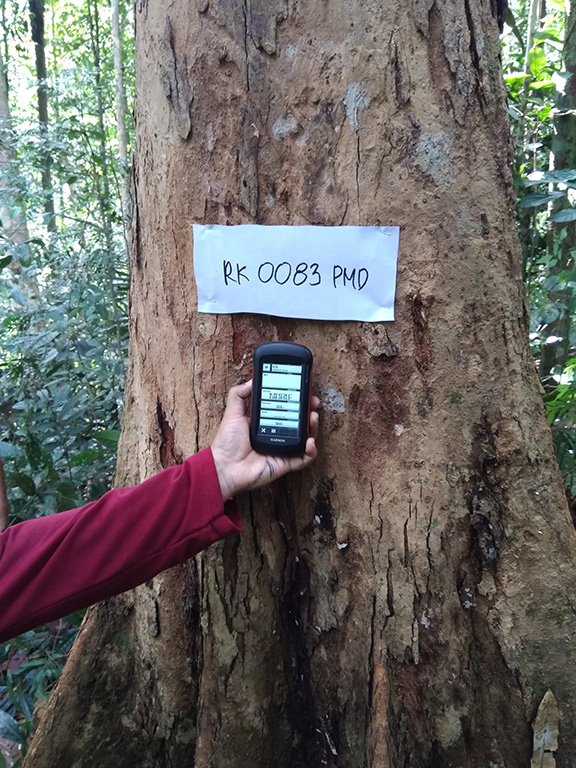 RK 0083 PMD
GARMIN